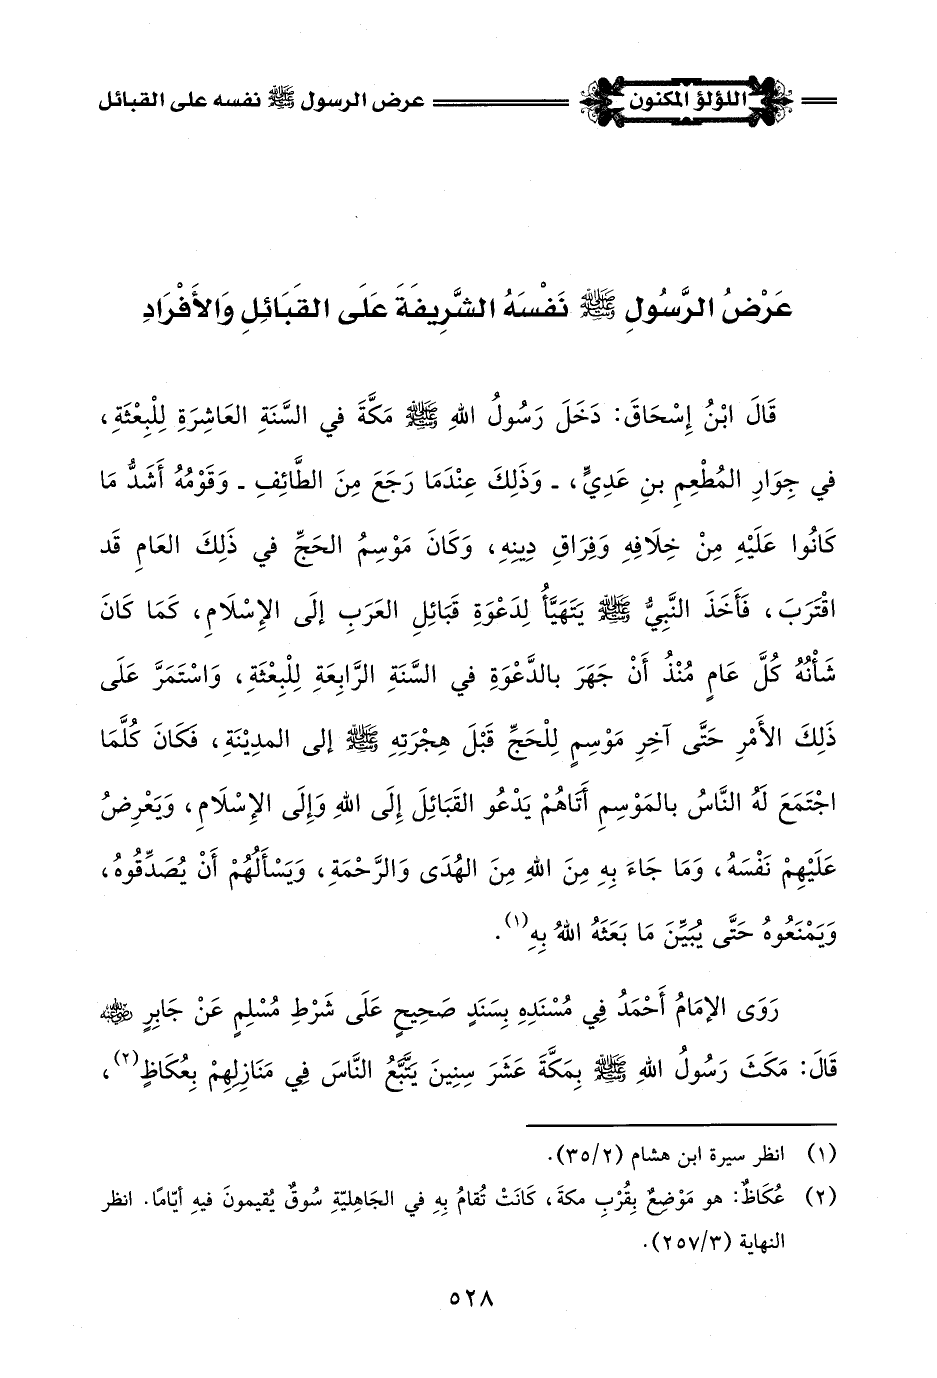 اللؤلؤ المكنون
عرض الرسول ﷺ نفسه على القبائل
عَرْضُ الرَّسُولِ ﷺ نَفْسَهُ الشَّرِيفَةَ عَلَى القَبَائِلِ وَالأَفْرَادِ
قَالَ ابْنُ إِسْحَاقَ: دَخَلَ رَسُولُ اللهِ ﷺ مَكَّةَ في السَّنَةِ العَاشِرَةِ لِلْبِعْثَةِ،
في جِوَارِ المُطْعِمِ بنِ عَدِيٍّ، ـ وَذَلِكَ عِنْدَمَا رَجَعَ مِنَ الطَّائِفِ ـ وَقَوْمُهُ أَشَدُّ مَا
كَانُوا عَلَيْهِ مِنْ خِلَافِهِ وَفِرَاقِ دِينِهِ، وَكَانَ مَوْسِمُ الحَجِّ في ذَلِكَ العَامِ قَد
اقْتَرَبَ، فَأَخَذَ النَّبِيُّ ﷺ يَتَهَيَّأُ لِدَعْوَةِ قَبَائِلِ العَرَبِ إلَى الإِسْلَامِ، كَمَا كَانَ
شَأْنُهُ كُلَّ عَامٍ مُنْذُ أَنْ جَهَرَ بالدَّعْوَةِ في السَّنَةِ الرَّابِعَةِ لِلْبِعْثَةِ، وَاسْتَمَرَّ عَلَى
ذَلِكَ الأَمْرِ حَتَّى آخِرِ مَوْسِمٍ لِلْحَجِّ قَبْلَ هِجْرَتِهِ ﷺ إلى المدِيْنَةِ، فَكَانَ كُلَّمَا
اجْتَمَعَ لَهُ النَّاسُ بالمَوْسِمِ أَتَاهُمْ يَدْعُو القَبَائِلَ إِلَى اللهِ وَإِلَى الإِسْلَامِ، وَيَعْرِضُ
عَلَيْهِمْ نَفْسَهُ، وَمَا جَاءَ بِهِ مِنَ اللهِ مِنَ الهُدَى وَالرَّحْمَةِ، وَيَسْأَلُهُمْ أَنْ يُصَدِّقُوهُ،
وَيَمْنَعُوهُ حَتَّى يُبَيِّنَ مَا بَعَثَهُ اللهُ بِهِ(١).
رَوَى الإِمَامُ أَحْمَدُ فِي مُسْنَدِهِ بِسَنَدٍ صَحِيحٍ عَلَى شَرْطِ مُسْلِمٍ عَنْ جَابِرٍ رضي الله عنه
قَالَ: مَكَثَ رَسُولُ اللهِ ﷺ بِمَكَّةَ عَشَرَ سِنِينَ يَتَّبَّعُ النَّاسَ فِي مَنَازِلِهِمْ بِعُكَاظٍ(٢)،
(١) انظر سيرة ابن هشام (٣٥/٢).
(٢) عُكَاظٌ: هو مَوْضِعٌ بِقُرْبِ مكة، كَانَتْ تُقامُ بِهِ في الجَاهليّةِ سُوقٌ يُقيمونَ فيه أيّامًا. انظر
النهاية (٢٥٧/٣).
٥٢٨